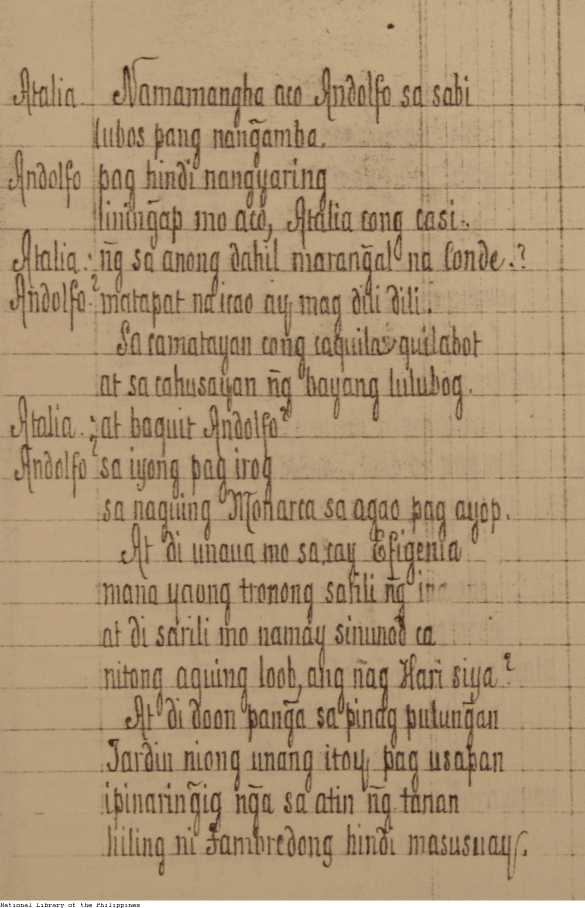 Atalia. Namamangha aco Andolfo sa sabi
lubos pang nang̃amba.
Andolfo pag hindi nangyaring
lining̃ap mo aco, Atalia cong casi.
Atalia: ñg sa anong dahil marang̃al na Conde.?
Andolfo: matapat na icao ay, mag dili dili.
Sa camatayan cong caquila quilabot
at sa cahusayan ñg bayang lulubog.
Atalia: at baquit Andolfo?
Andolfo sa iyong pag irog
sa naguing Monarca sa agao pag ayop.
At di unaua mo sa, cay Efigenia
mana yaong tronong sarili ñg
at di sarili mo namay sinunod ca
nitong aquing loob, ang ñag Hari siya?
At di doon pang̃a sa pinag pulung̃an
Jardin niong unang itoy, pag usapan
ipinaring̃ig ng̃a sa atin ñg tanan
hiling ni Fambredong hindi masusuay.
National Library of the Philippines